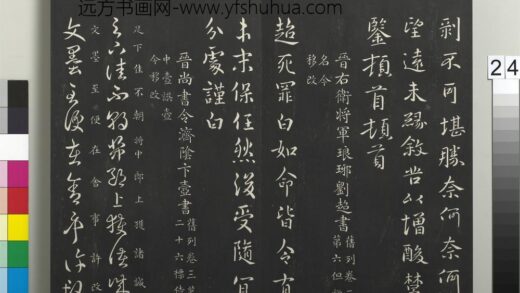 远方书画网-www.yfshuhua.com
24
剥不可堪勝奈何奈何
望遠未緣敘苦以增酸楚
鑒頓首頓首
晉右衛將軍琅琊劉超書 舊列卷三
第六但標
名今
移改
超死罪白如命皆令有
未保任然後受隨宜
分處謹白
晉尚書令濟陰卞壼書 舊列卷三第
二十六標侍
中壼
今移改
足下佳不朝將中郎上諸識
文墨至便在舍事許改